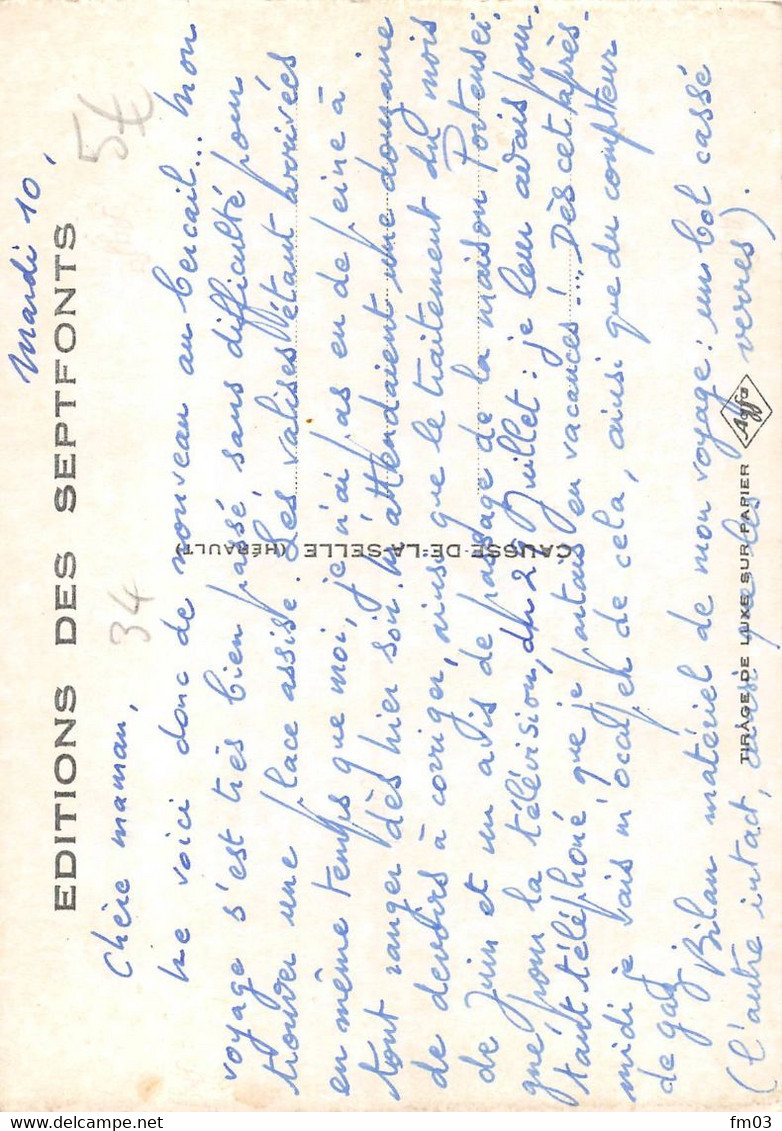 Mardi 10.
EDITIONS DES SEPTFONTS
5€
34
Chère maman,
Me voici donc de nouveau au bercail... Mon
voyage s'est très bien passé, sans difficulté pour
trouver une place assise. Les valises étant arrivées
en même temps que moi, je n'ai pas eu de peine à
tout ranger dès hier soir. M'attendaient une douzaine
de devoirs à corriger, ainsi que le traitement du mois
de Juin et un avis de passage de la maison
que pour la télévision, du 29 Juillet : je leur avais pour-
tant téléphoné que je partais en vacances !... Dès cet après-
midi je vais m'occuper de cela, ainsi que du compteur
de gaz
Bilan matériel de mon voyage : un bol cassé
(l'autre intact, ainsi que les verres).
CAUSSE-DE-LA-SELLE (HÉRAULT)
TIRAGE DE LUXE SUR PAPIER Agfa
delcampe.net
fm03